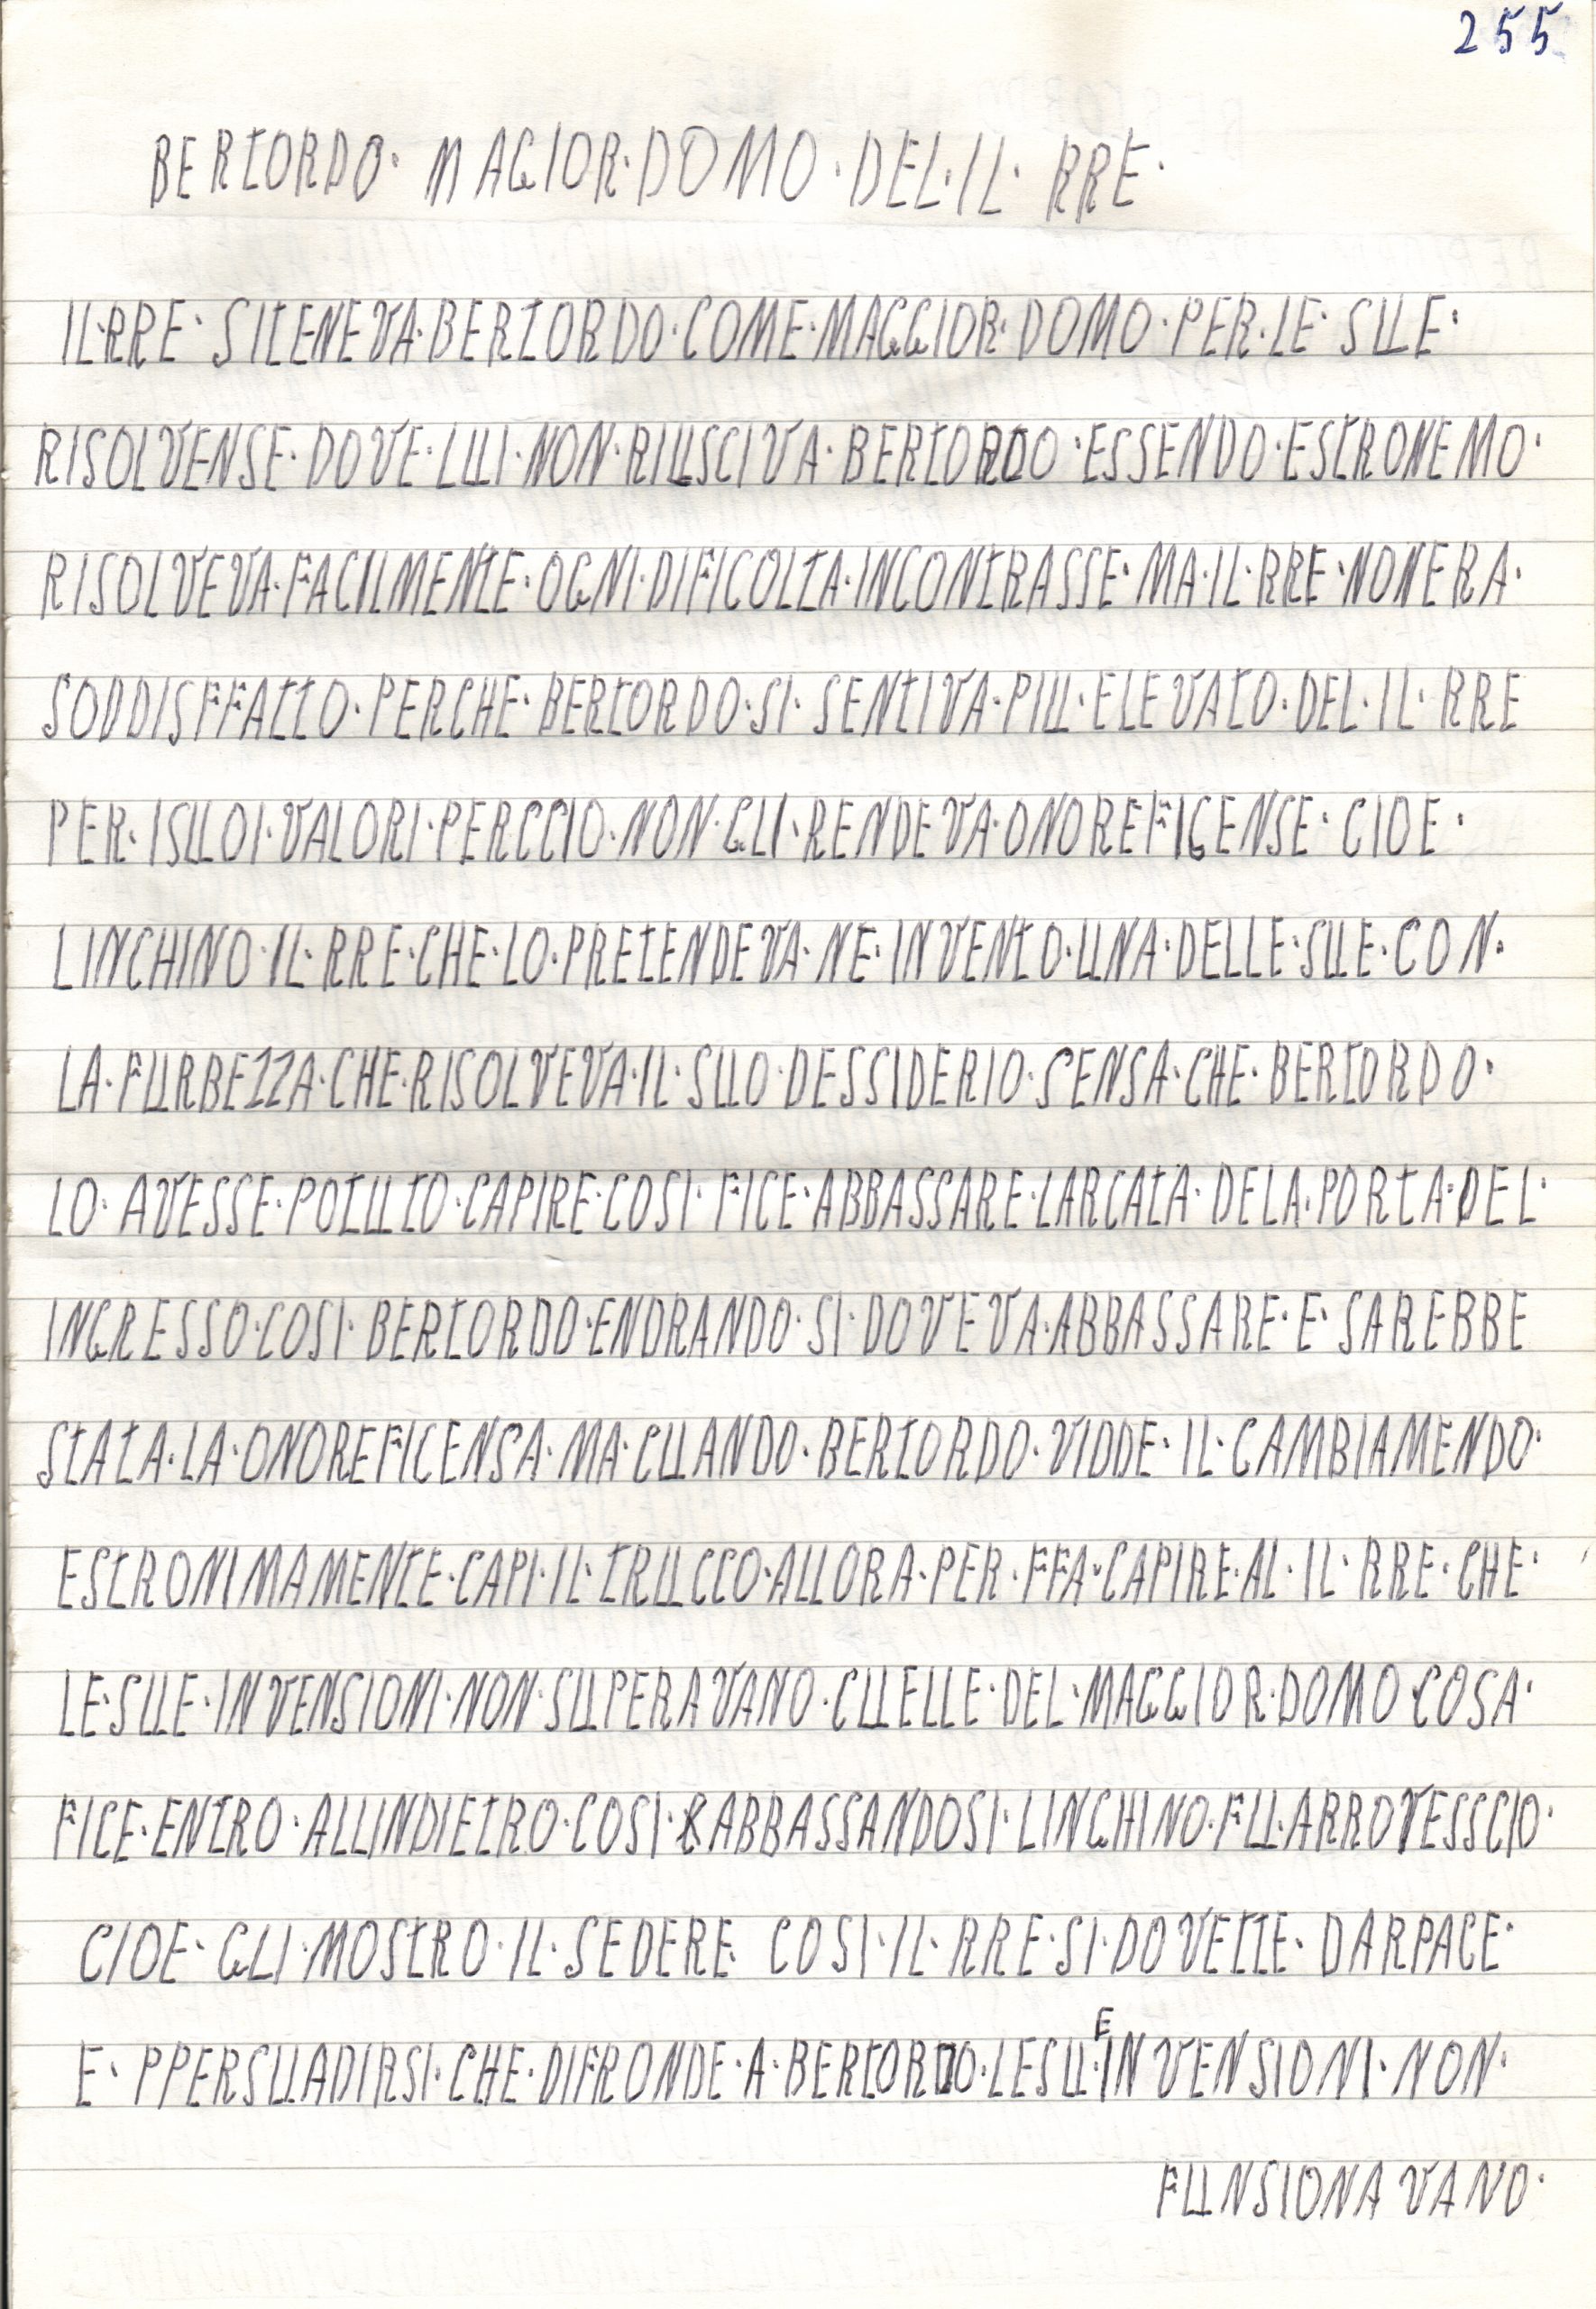 255
BERTORDO· MAGIOR·DOMO·DEL·IL· RRE·
IL·RRE· SITENEVA·BERTORDO·COME·MAGGIOR·DOMO·PER·LE· SUE·
RISOLVENSE·DOVE·LUI·NON·RIUSCIVA·BERTORDO·ESSENDO·ESTRONEMO·
RISOLVEVA·FACILMENTE·OGNI·DIFICOLTA·INCONTRASSE·MA·IL·RRE·NONERA·
SODDISFFATTO·PERCHE·BERTORDO·SI·SENTIVA·PIU·ELEVATO·DEL·IL·RRE
PER·ISUOI·VALORI·PERCCIO·NON·GLI·RENDEVA·ONOREFICENSE·CIOE·
LINCHINO·IL·RRE·CHE·LO·PRETENDEVA·NE·INVENTO·UNA·DELLE·SUE·CON·
LA·FURBEZZA·CHE·RISOLVEVA·IL·SUO·DESSIDERIO·SENSA·CHE·BERTORDO·
LO·AVESSE·POTUTO·CAPIRE·COSI·FICE·ABBASSARE·LARCATA·DELA·PORTA·DEL·
INGRESSO·COSI·BERTORDO·ENDRANDO·SI·DOVEVA·ABBASSARE·E·SAREBBE
STATA·LA·ONOREFICENSA·MA·CUANDO·BERTORDO·VIDDE·IL·CAMBIAMENDO·
ESTRONIMAMENTE·CAPI·IL·TRUCCO·ALLORA·PER·FFA·CAPIRE·AL·IL·RRE·CHE·
LE·SUE·INVENSIONI·NON·SUPERAVANO·CUELLE·DEL·MAGGIOR·DOMO·COSA·
FICE·ENTRO·ALLINDIETRO·COSI·ABBASSANDOSI·LINGHINO·FU·ARROVESSCIO·
CIOE·GLI·MOSTRO·IL·SEDERE· COSI·IL·RRE·SI·DOVETTE·DARPACE·
E·PPERSUADIRSI·CHE·DIFRONDE·A·BERTORDO·LESUE·INVENSIONI·NON·
FUNSIONAVANO·